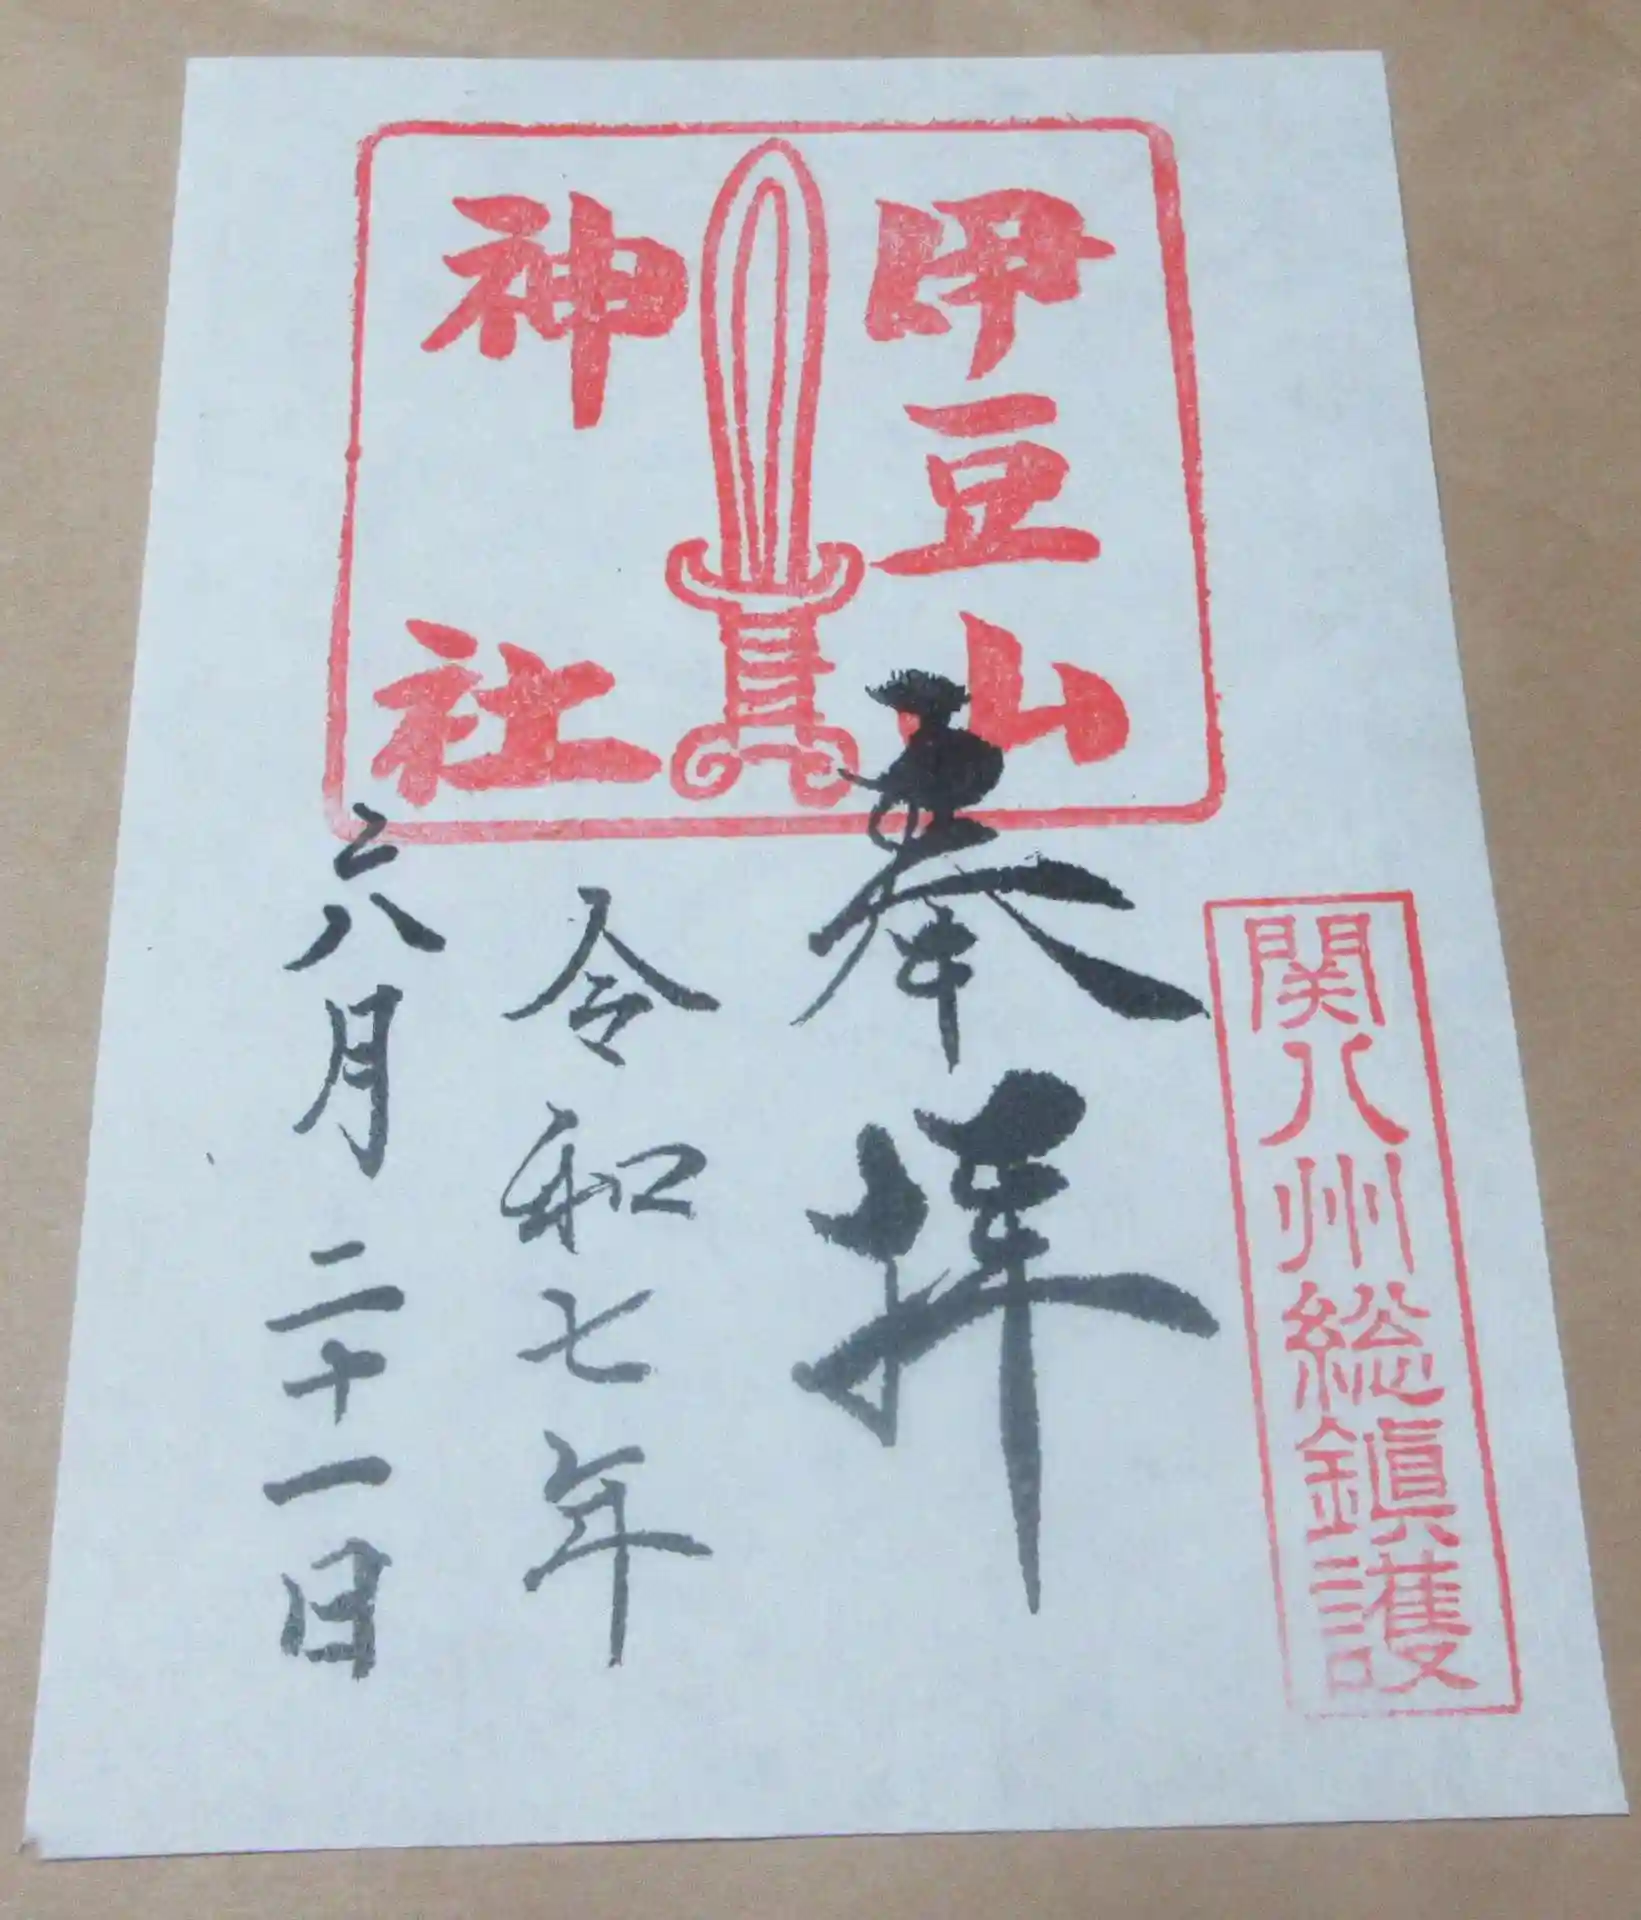 関八州総鎮護
奉拝
伊豆山
神社
令和七年
六月二十一日